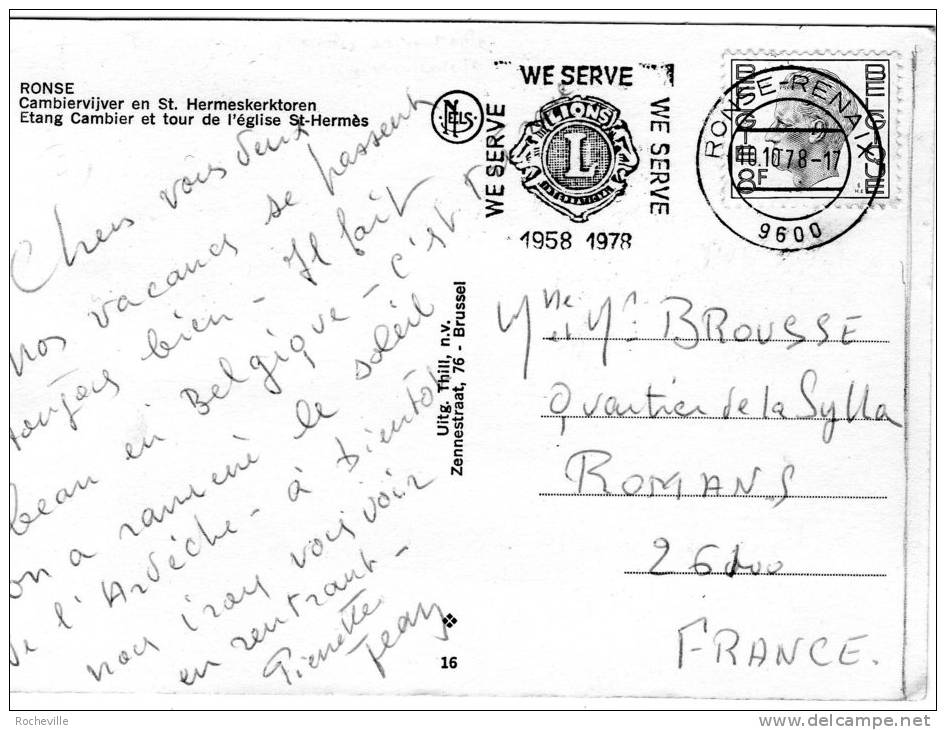 RONSE
Cambiervijver en St. Hermeskerktoren
Etang Cambier et tour de l'église St-Hermès
NELS
WE SERVE
WE SERVE
WE SERVE
LIONS
L
INTERNATIONAL
1958 1978
RONSE-RENAIX
10.10.78-17
9600
BELGIE
BELGIQUE
8F
Chers vous deux
nos vacances se passent
toujours bien - Il fait
beau en Belgique - c'est
on a ramené le soleil
de l'Ardèche - à bientôt
nous irons vous voir
en rentrant -
Pierrette
Jean
Uitg. Thill, n.v.
Zennestraat, 76 - Brussel
16
Mme et Mr BROUSSE
Quartier de la Sylla
ROMANS
26100
FRANCE.
Rocheville
delcampe.net